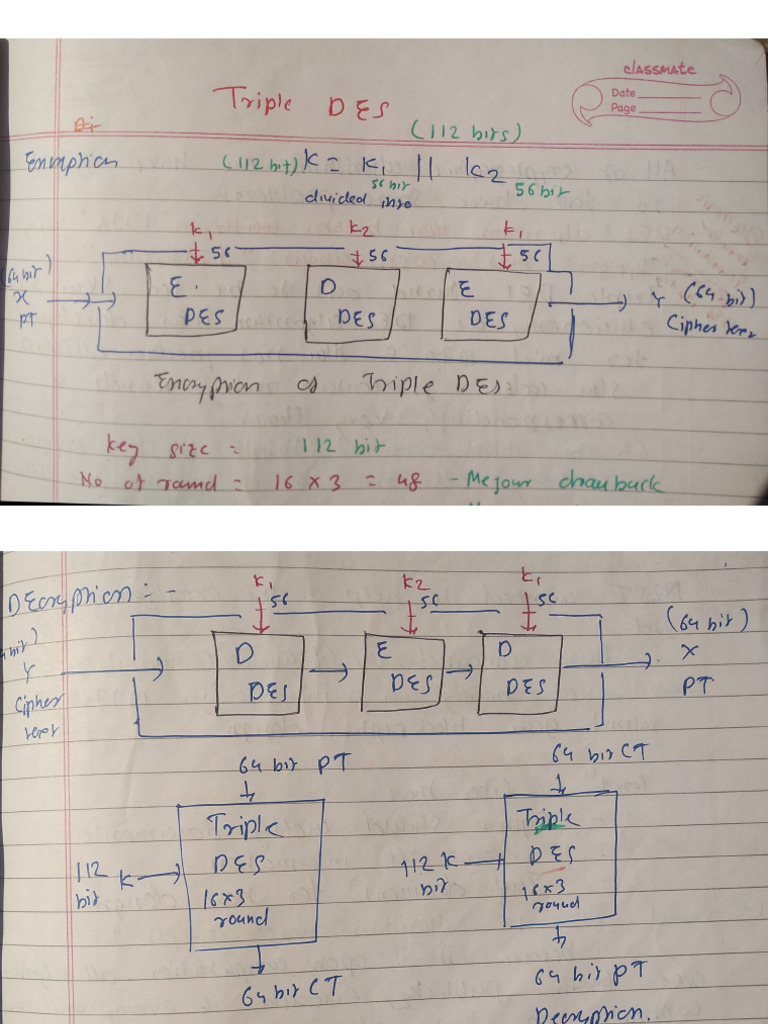 classmate
Date
Page
Triple DES
(112 bits)
Encryption (112 bit) K = K1 || K2
56 bit 56 bit
divided into
K1 K2 K1
56 56 56
(64 bit)
X
PT
E DES
D DES
E DES
Y (64 bit)
Cipher text
Encryption of Triple DES
key size = 112 bit
No of round = 16 x 3 = 48 - Mejour drawback
DEcryption :-
K1 K2 K1
56 56 56
bit)
Y
Cipher
text
D DES
E DES
D DES
(64 bit)
X
PT
64 bit PT
112 bit K
Triple
DES
16x3
round
64 bit CT
64 bit CT
112 K
bit
Triple
DES
16x3
round
64 bit PT
Decryption.